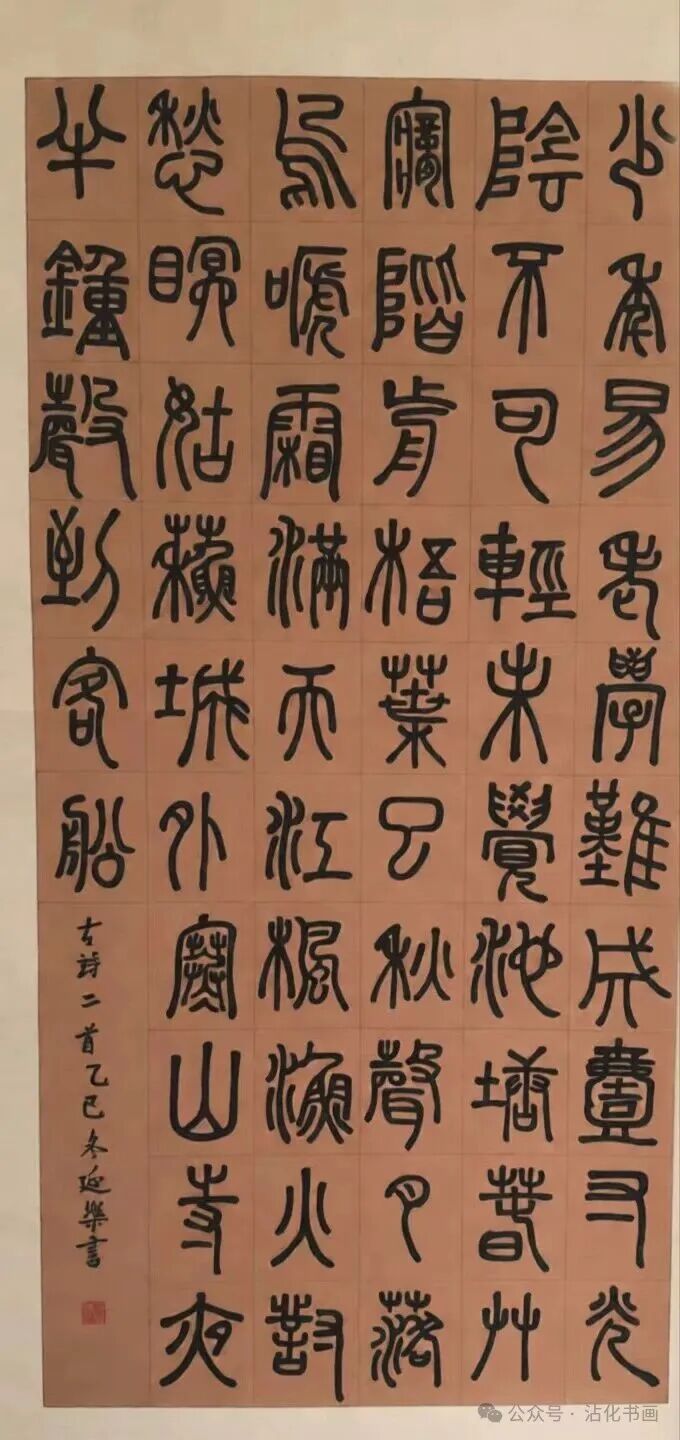 少年易老學難成壹寸光
陰不可輕未覺池塘春草
夢階前梧葉已秋聲月落
烏嗁霜滿天江楓漁火對
愁眠姑蘇城外寒山寺夜
半鐘聲到客船
古詩二首乙巳冬延樂書
公众号·沾化书画